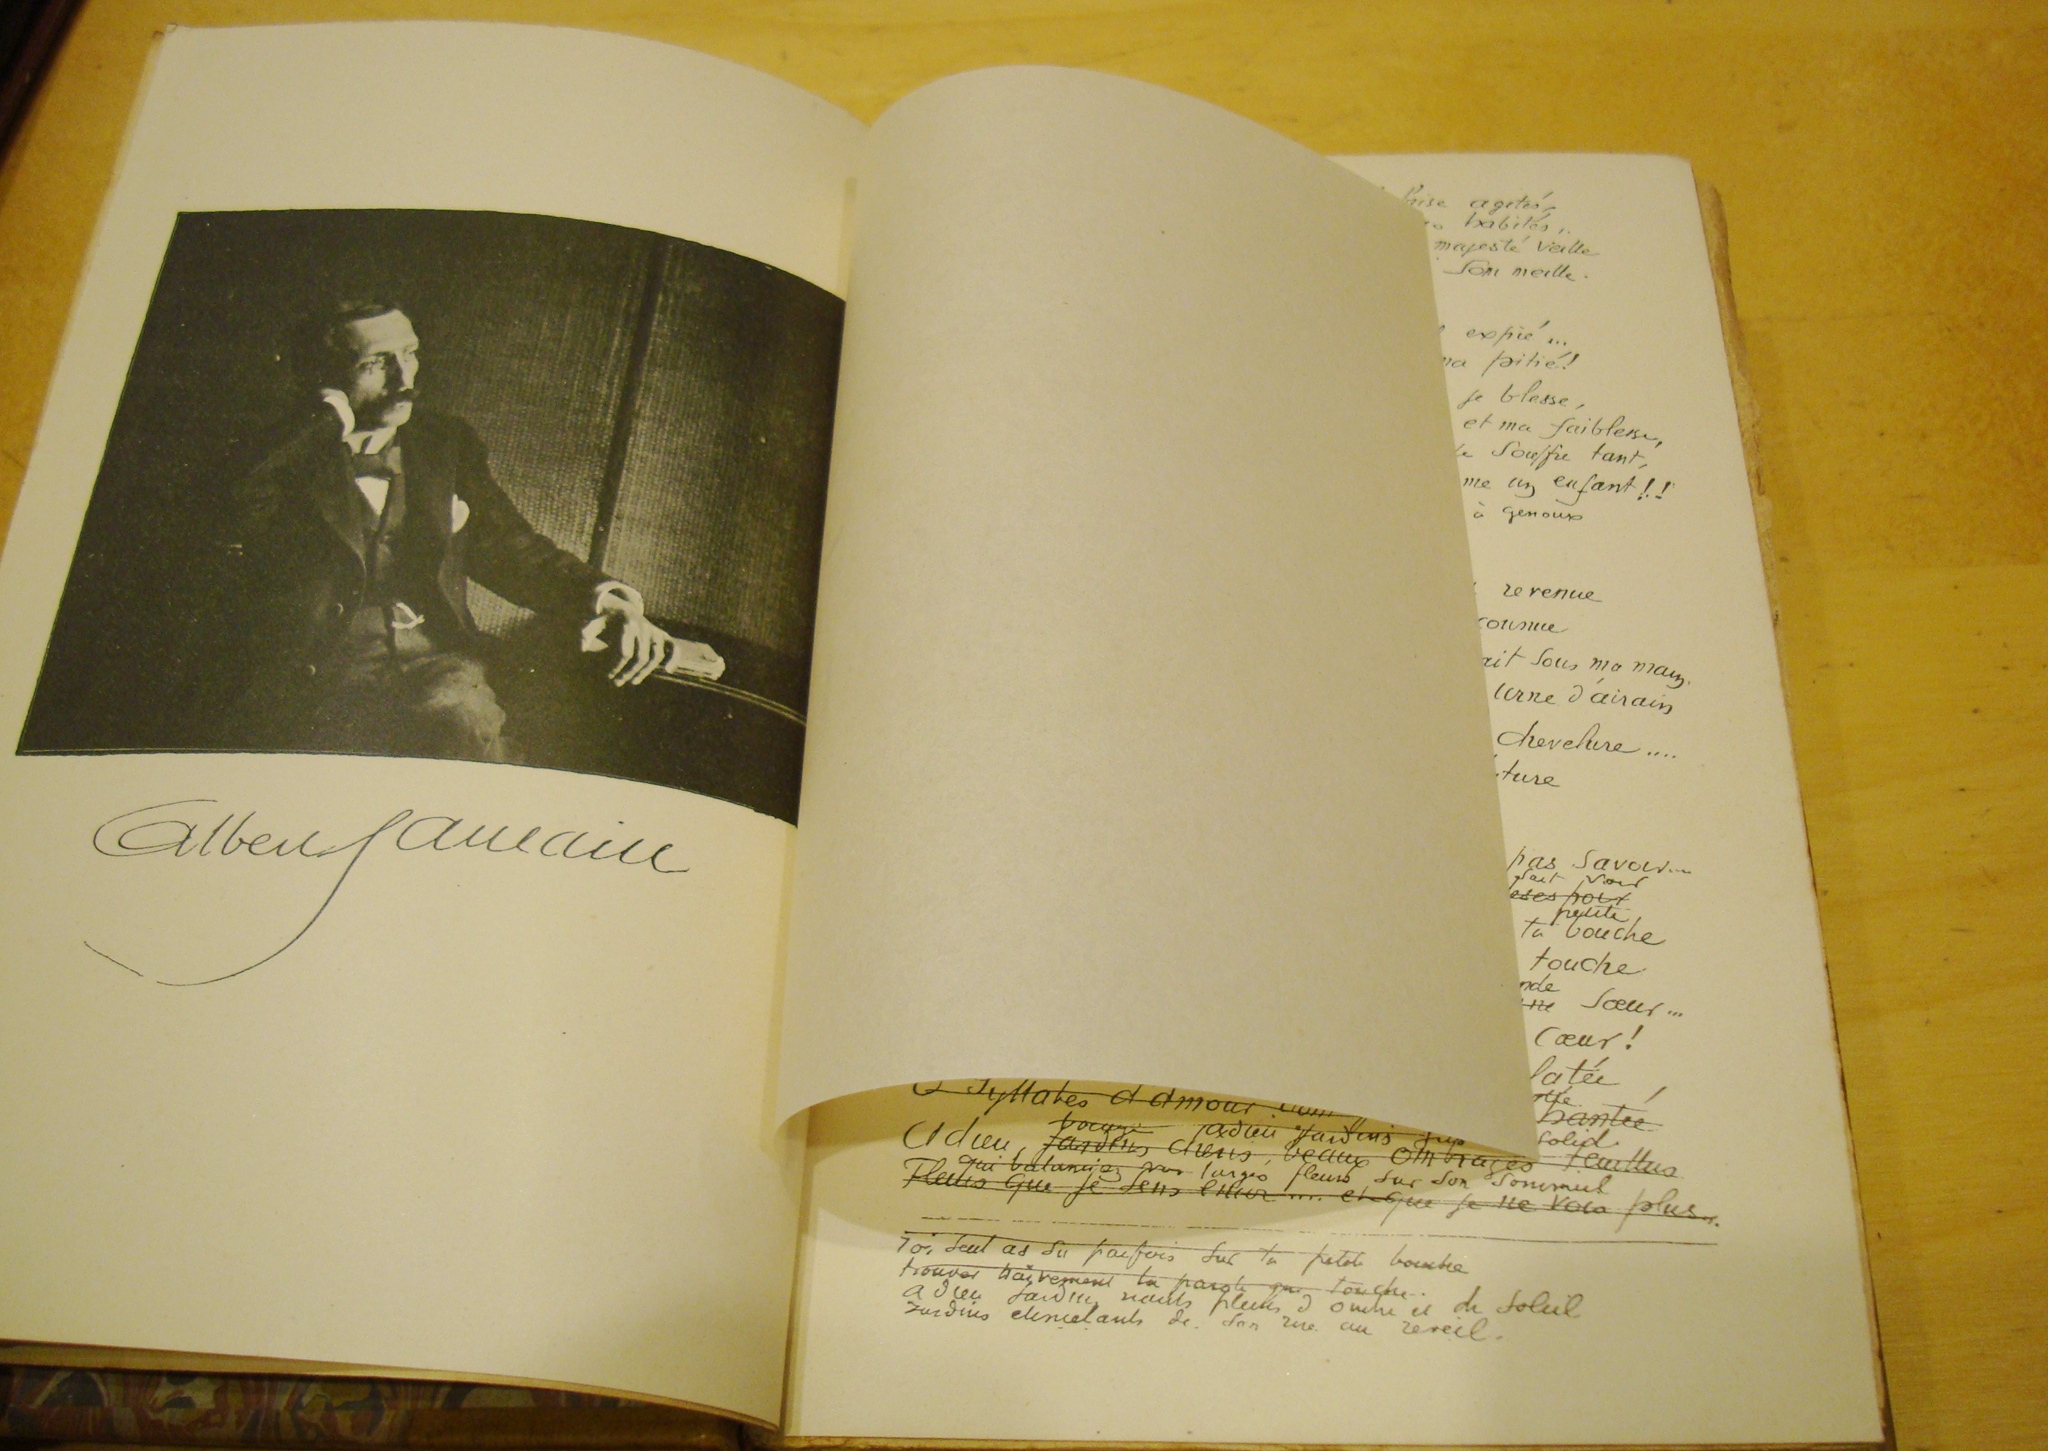 Albert Samain
brise agités,
habités..
majesté veille
son meille.
expié...
ma pitié!
je blesse,
et ma faiblesse,
souffre tant,
me un enfant!!
à genoux
revenue
connue
ait sous ma main.
urne d'airain
chevelure....
ture
pas savoir...
sait voir
eses pour
petite
ta bouche
touche
nde
sœur...
cœur!
latée
hantée
Syllabes d'amour
bouge adieu jardins solid
Adieu, jardins chers, beaux ombrages feuillus
qui balanciez vos larges fleurs sur son sommeil
Fleurs que je sens encor.... et que je ne vois plus...
Toi seul as su parfois sur ta petite bouche
trouver naïvement la parole qui touche.
Adieu jardin nants pleins d'ombre et de soleil
Jardins étincelants de son rire au reveil.